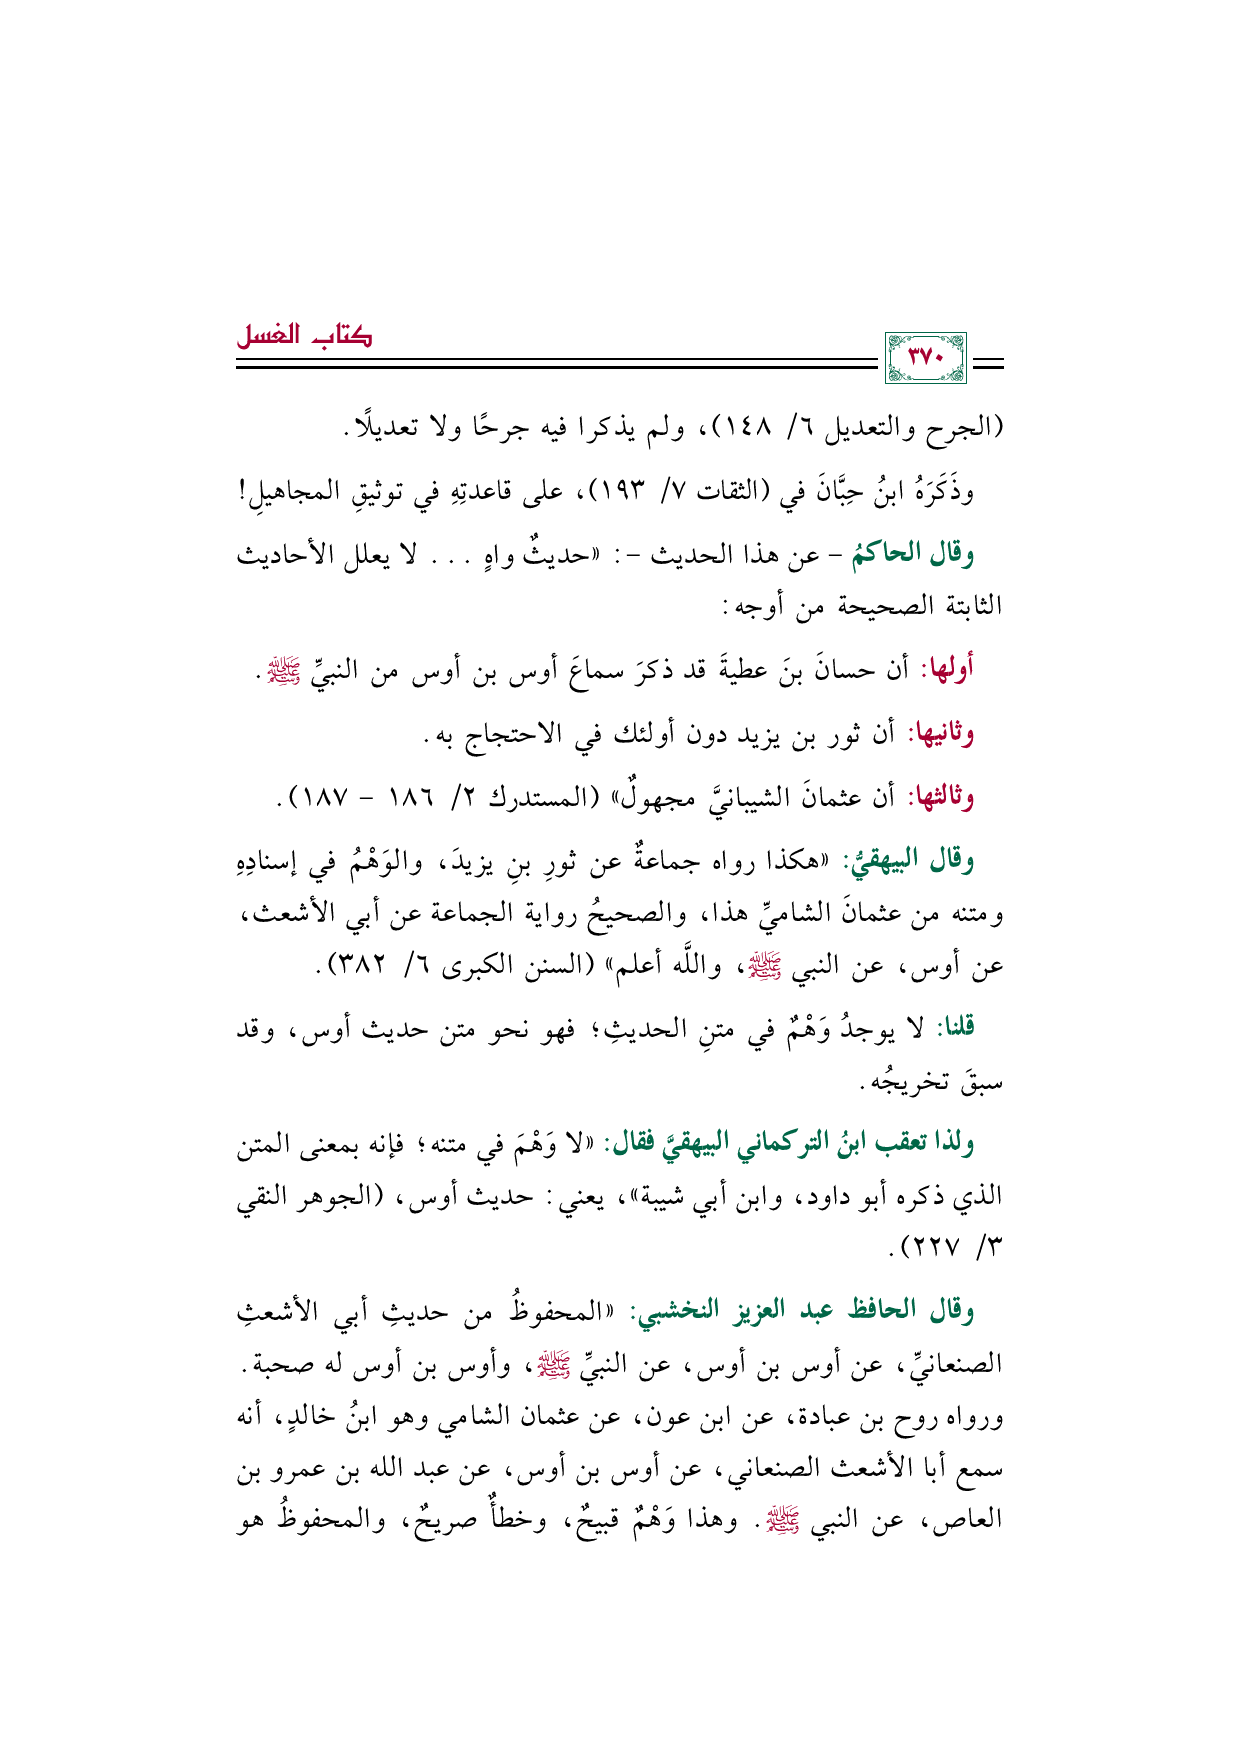 كتاب الغسل
٣٧٠
(الجرح والتعديل ٦/ ١٤٨)، ولم يذكرا فيه جرحًا ولا تعديلًا.
وذَكَرَهُ ابنُ حِبَّانَ في (الثقات ٧/ ١٩٣)، على قاعدتِهِ في توثيقِ المجاهيلِ!
وقال الحاكمُ – عن هذا الحديث –: «حديثٌ واهٍ . . . لا يعلل الأحاديث
الثابتة الصحيحة من أوجه:
أولها: أن حسانَ بنَ عطيةَ قد ذكرَ سماعَ أوس بن أوس من النبيِّ ﷺ.
وثانيها: أن ثور بن يزيد دون أولئك في الاحتجاج به.
وثالثها: أن عثمانَ الشيبانيَّ مجهولٌ» (المستدرك ٢/ ١٨٦ – ١٨٧).
وقال البيهقيُّ: «هكذا رواه جماعةٌ عن ثورِ بنِ يزيدَ، والوَهْمُ في إسنادِهِ
ومتنه من عثمانَ الشاميِّ هذا، والصحيحُ رواية الجماعة عن أبي الأشعث،
عن أوس، عن النبي ﷺ، واللَّه أعلم» (السنن الكبرى ٦/ ٣٨٢).
قلنا: لا يوجدُ وَهْمٌ في متنِ الحديثِ؛ فهو نحو متن حديث أوس، وقد
سبقَ تخريجُه.
ولذا تعقب ابنُ التركماني البيهقيَّ فقال: «لا وَهْمَ في متنه؛ فإنه بمعنى المتن
الذي ذكره أبو داود، وابن أبي شيبة»، يعني: حديث أوس، (الجوهر النقي
٣/ ٢٢٧).
وقال الحافظ عبد العزيز النخشبي: «المحفوظُ من حديثِ أبي الأشعثِ
الصنعانيِّ، عن أوس بن أوس، عن النبيِّ ﷺ، وأوس بن أوس له صحبة.
ورواه روح بن عبادة، عن ابن عون، عن عثمان الشامي وهو ابنُ خالدٍ، أنه
سمع أبا الأشعث الصنعاني، عن أوس بن أوس، عن عبد الله بن عمرو بن
العاص، عن النبي ﷺ. وهذا وَهْمٌ قبيحٌ، وخطأٌ صريحٌ، والمحفوظُ هو